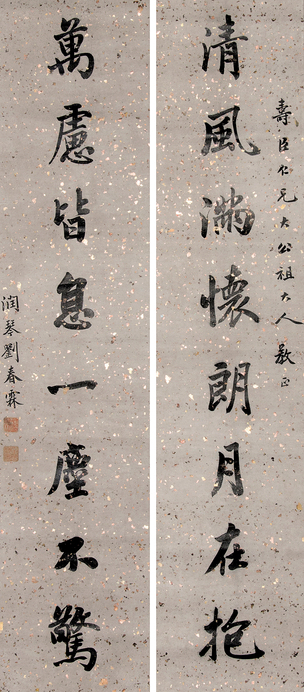 壽臣仁兄大公祖大人教正
清風滿懷朗月在抱
萬慮皆息一塵不驚
潤琴劉春霖